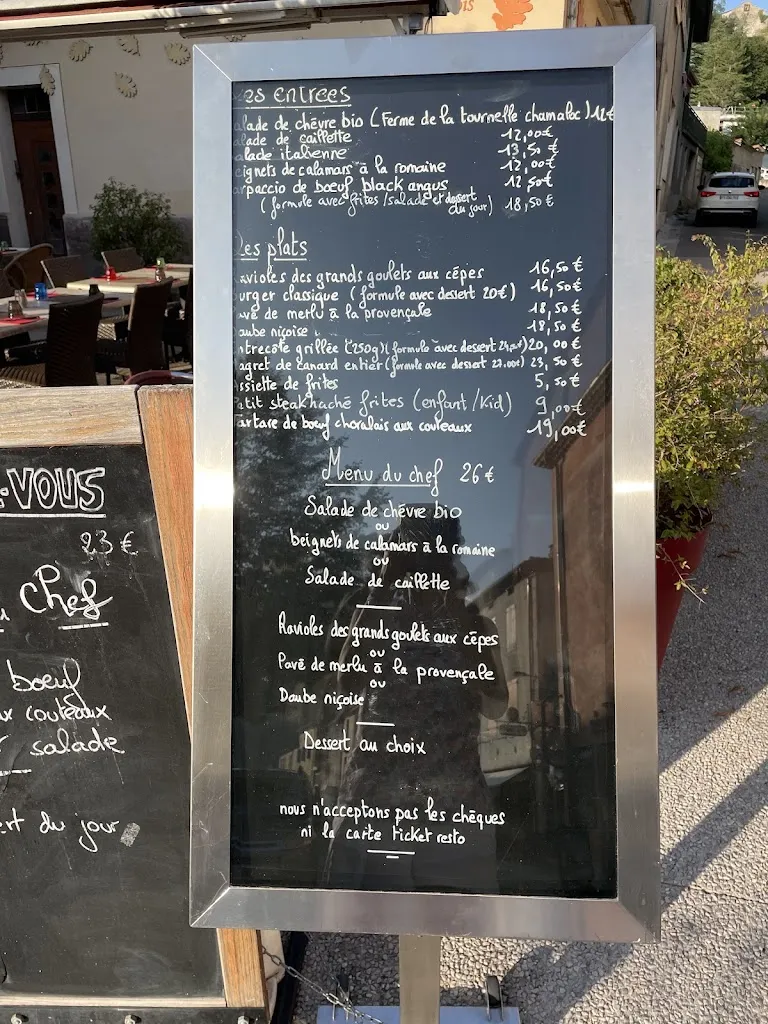 es entrées
alade de chèvre bio (Ferme de la tournelle chamaloc) 12€
alade de caillette 12,00€
alade italienne 13,50€
eignets de calamars à la romaine 12,00€
arpaccio de boeuf black angus 12,50€
(formule avec frites/salade et dessert du jour) 18,50€
Les plats
avioles des grands goulets aux cèpes 16,50€
urger classique (formule avec dessert 20€) 16,50€
avé de merlu à la provençale 18,50€
aube niçoise 18,50€
ntrecôte grillée (250g) (formule avec dessert 20,00€
agret de canard entier (formule avec dessert 27.00€) 23,50€
ssiette de frites 5,50€
etit steak haché frites (enfant/Kid) 9,00€
artare de boeuf choralais aux couteaux 19,00€
Menu du chef 26€
Salade de chèvre bio
ou
beignets de calamars à la romaine
ou
Salade de caillette
Ravioles des grands goulets aux cèpes
ou
Pavé de merlu à la provençale
ou
Daube niçoise
Dessert au choix
nous n'acceptons pas les chèques
ni la carte ticket resto
-VOUS
23€
Chef
boeuf
ux couteaux
salade
ert du jour
is